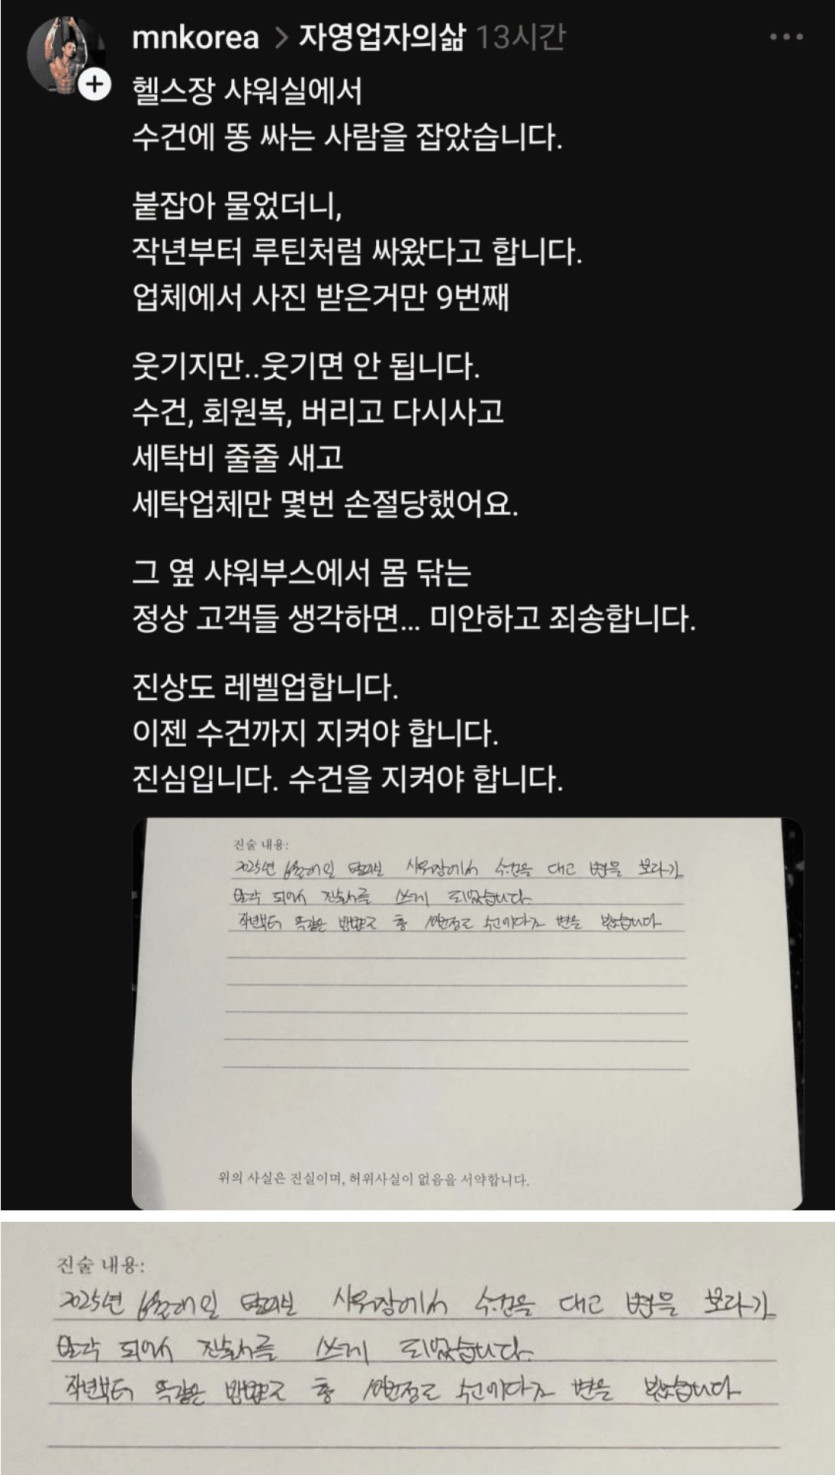 mnkorea > 자영업자의삶 13시간
헬스장 샤워실에서
수건에 똥 싸는 사람을 잡았습니다.
붙잡아 물었더니,
작년부터 루틴처럼 싸왔다고 합니다.
업체에서 사진 받은거만 9번째
웃기지만..웃기면 안 됩니다.
수건, 회원복, 버리고 다시사고
세탁비 줄줄 새고
세탁업체만 몇번 손절당했어요.
그 옆 샤워부스에서 몸 닦는
정상 고객들 생각하면... 미안하고 죄송합니다.
진상도 레벨업합니다.
이젠 수건까지 지켜야 합니다.
진심입니다. 수건을 지켜야 합니다.
진술 내용:
2025년 탈의실 샤워장에서 수건을 대고 변을 보다가
발각 되어서 진술서를 쓰게 되었습니다.
작년부터 똑같은 방법으로 총 10번정도 수건에다가 변을 보았습니다
위의 사실은 진실이며, 허위사실이 없음을 서약합니다.
진술 내용:
2025년 탈의실 샤워장에서 수건을 대고 변을 보다가
발각 되어서 진술서를 쓰게 되었습니다.
작년부터 똑같은 방법으로 총 10번정도 수건에다가 변을 보았습니다